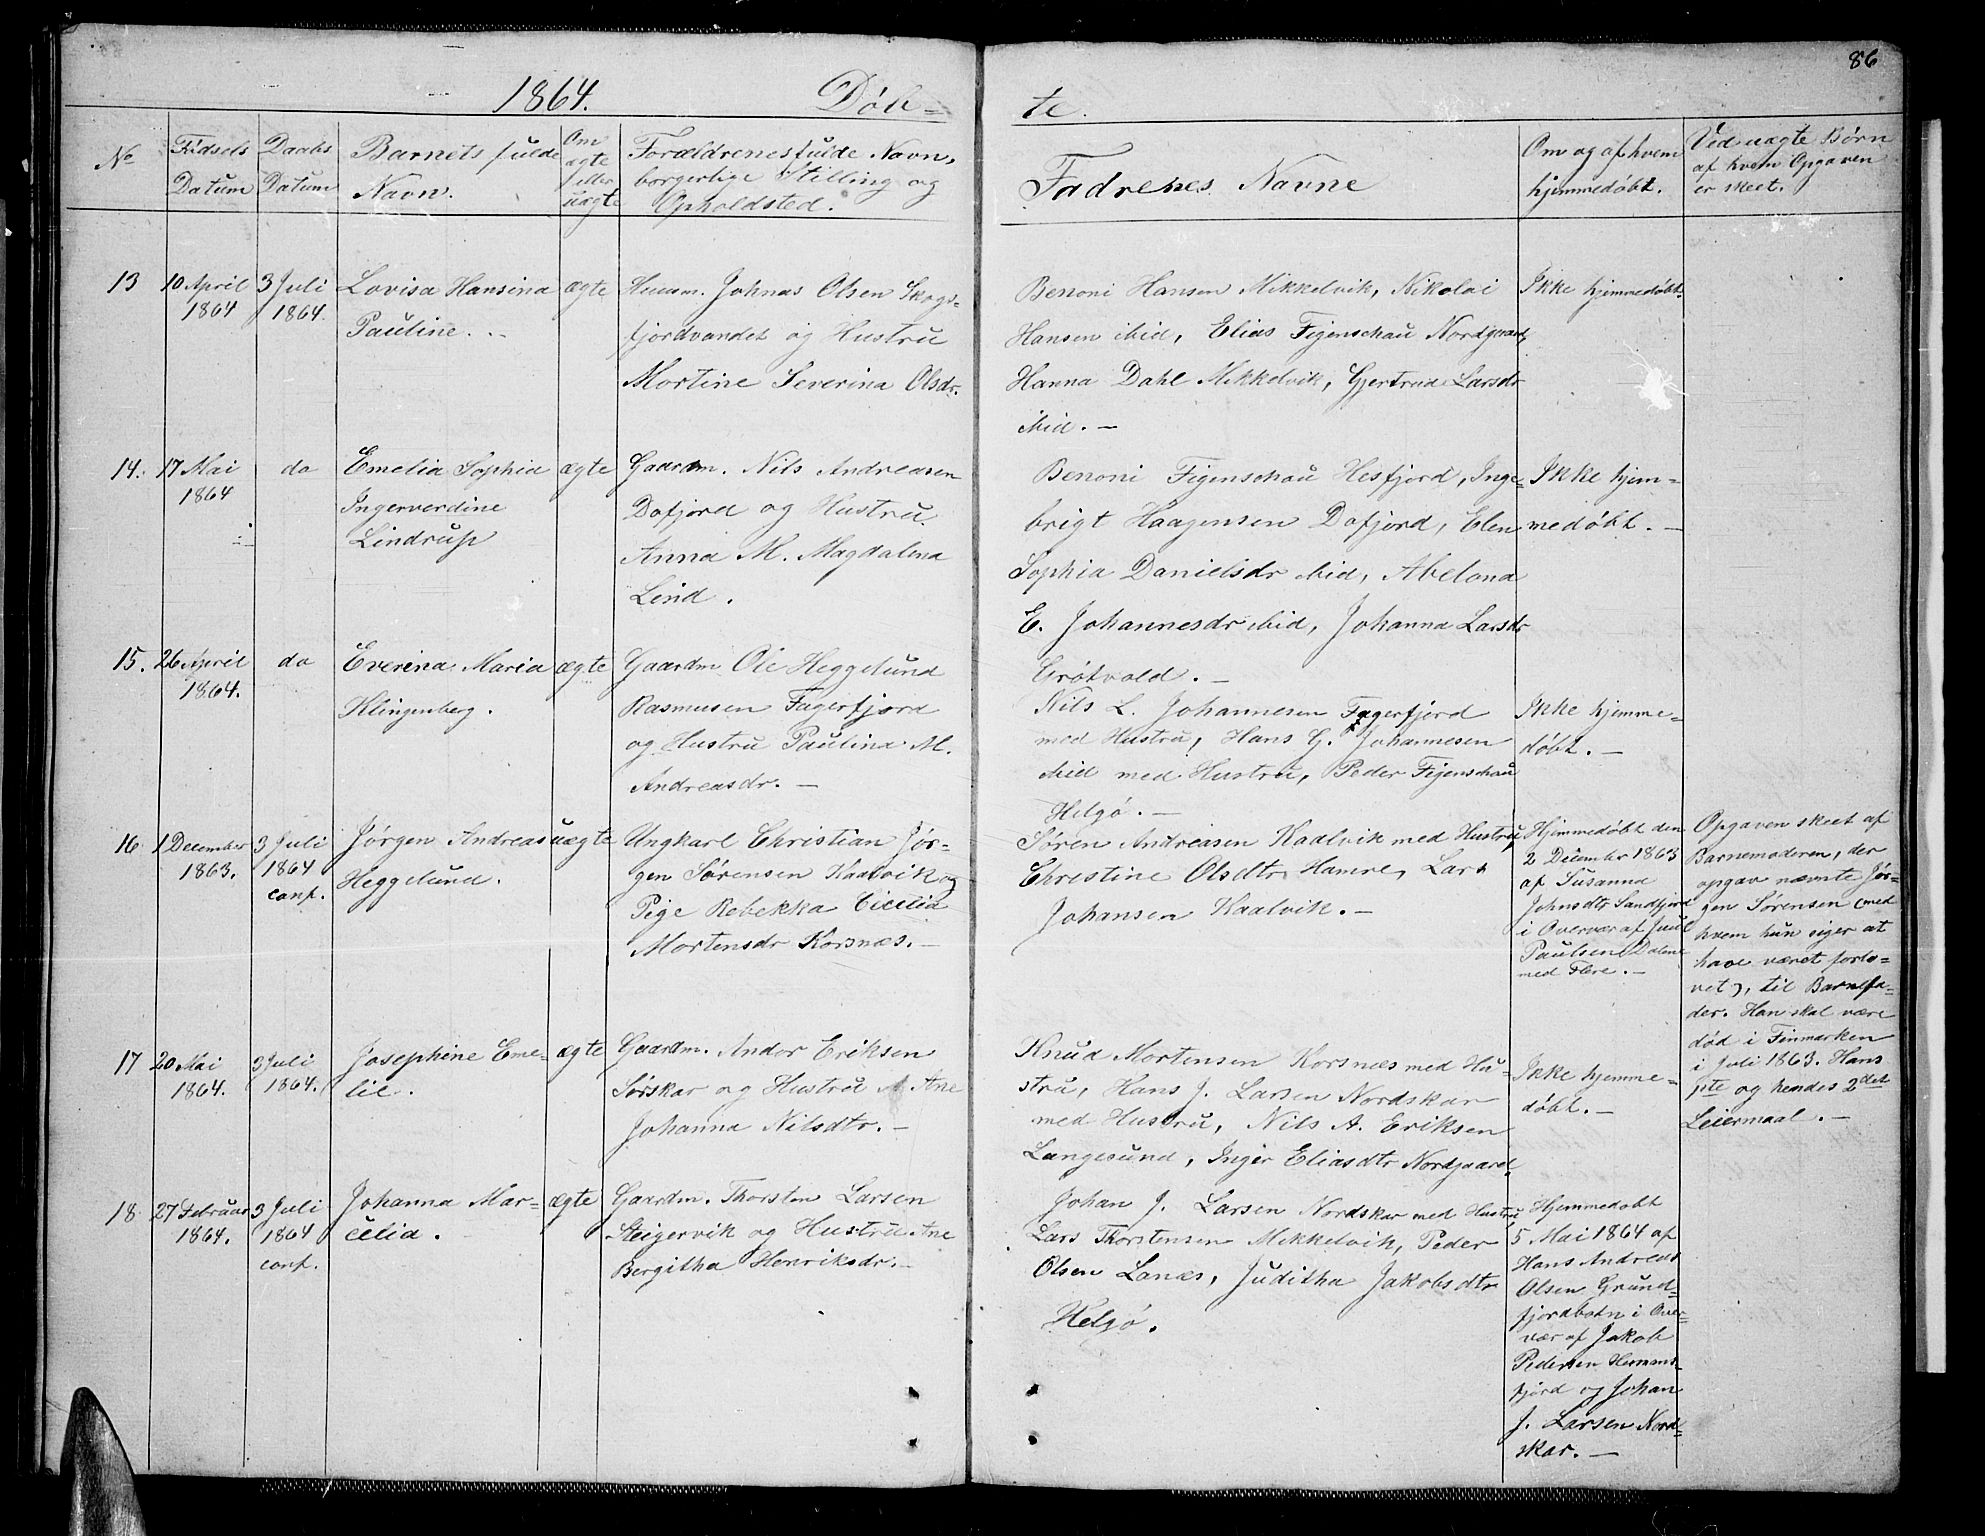 86
1864. Døb-
te.
No
Fødsels
Datum
Daabs
Datum
Barnets fulde
Navn.
Om
ægte
eller
uægte
Forældrenes fulde Navn,
borgerlige Stilling og
Opholdsted.
Fadrenes Navne
Om og af hvem
hjemmedøbt.
Ved uægte Børn
af hvem Opgaven
er skeet.
13
10 April
1864
3 Juli
1864.
Lovisa Hansina
Pauline. -
ægte
Huusm. Johnas Olsen Skogs-
fjordvandet og Hustru
Mortine Severina Olsdr.
Benoni Hansen Mikkelvik, Nikolai
Hansen ibid, Elias Figenschau Nordgaard,
Hanna Dahl Mikkelvik, Gjertrud Larsdr
ibid. -
Ikke hjemmedøbt.
14.
17 Mai
1864
do
Emelia Sophia
Ingerverdine
Lindrup
ægte
Gaardm. Nils Andreasen
Dafjord og Hustru
Anna M. Magdalena
Lind.
Benoni Figenschau Hesfjord, Inge-
brigt Haagensen Dafjord, Elen
Sophia Danielsdr ibid, Abelona
E. Johannesdr ibid, Johanna Larsdr
Grøtvold. -
Ikke hjem-
medøbt. -
15.
26 April
1864.
do
Everina Maria
Klingenberg.
ægte
Gaardm Ole Heggelund
Rasmusen Fagerfjord
og Hustru Paulina M.
Andreasdr. -
Nils L. Johannesen Fagerfjord
med Hustru, Hans G. Johannesen
ibid med Hustru, Peder Figenschau
Helgø. -
Ikke hjemme-
døbt. -
16
1 December
1863.
3 Juli
1864
conf.
Jørgen Andreas
Heggelund.
uægte
Ungkarl Christian Jør-
gen Sørensen Kaalvik og
Pige Rebekka Cicelia
Mortensdr Korsnæs. -
Søren Andreasen Kaalvik med Hustru,
Christine Olsdtr Hamre, Lars
Johansen Kaalvik. -
Hjemmedøbt den
2 December 1863
af Susanna
Johnsdtr Sandfjord
i Overvær af Juul
Paulsen Dalen
med Flere. -
Opgaven skeet af
Barnemoderen, der
opgav nævnte Jør-
gen Sørensen (med
hvem hun siger at
have været forlo-
vet), til Barnefa-
der. Han skal være
død i Finmarken
i Juli 1863. Hans
1ste og hendes 2det
Leiermaal. -
17
20 Mai
1864.
3 Juli
1864.
Josephine Eme-
lie.
ægte
Gaardm. Andor Eriksen
Sørskar og Hustru A. Ane
Johanna Nilsdtr. -
Knud Mortensen Korsnæs med Hu-
stru, Hans J. Larsen Nordskar
med Hustru, Nils A. Eriksen
Langesund, Inger Eliasdtr Nordgaard.
Ikke hjemme-
døbt. -
18
27 Februar
1864.
3 Juli
1864
conf.
Johanna Mar-
celia.
ægte
Gaardm. Thorsten Larsen
Steigervik og Hustru Ane
Bergitha Henriksdr. -
Johan J. Larsen Nordskar med Hustru,
Lars Thorstensen Mikkelvik, Peder
Olsen Lanæs, Juditha Jakobsdtr
Helgø.
Hjemmedøbt
5 Mai 1864 af
Hans Andreas
Olsen Grund-
fjordbotn i Over-
vær af Jakob
Pedersen Hemms-
fjord og Johan
J. Larsen Nord-
skar. -